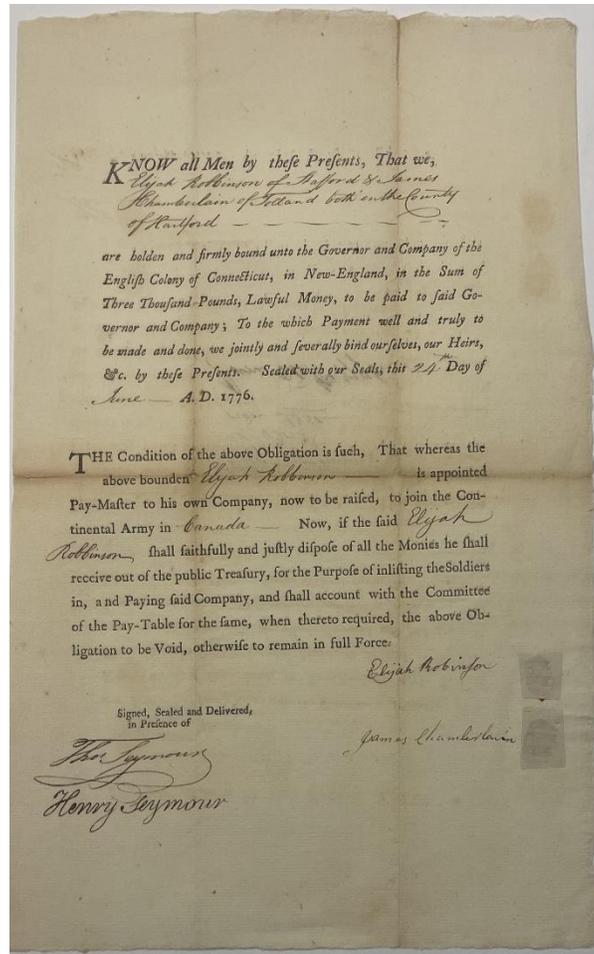 KNOW all Men by theſe Preſents, That we,
Elijah Robbinson of Stafford & James
Chamberlain of Tolland both in the County
of Hartford
are holden and firmly bound unto the Governor and Company of the
Engliſh Colony of Connecticut, in New-England, in the Sum of
Three Thouſand Pounds, Lawful Money, to be paid to ſaid Go-
vernor and Company; To the which Payment well and truly to
be made and done, we jointly and ſeverally bind ourſelves, our Heirs,
&c. by theſe Preſents. Sealed with our Seals, this 24th Day of
June A. D. 1776.
THE Condition of the above Obligation is ſuch, That whereas the
above bounden Elijah Robbinson is appointed
Pay-Maſter to his own Company, now to be raiſed, to join the Con-
tinental Army in Canada Now, if the ſaid Elijah
Robbinson ſhall faithfully and juſtly diſpoſe of all the Monies he ſhall
receive out of the public Treaſury, for the Purpoſe of inliſting the Soldiers
in, and Paying ſaid Company, and ſhall account with the Committee
of the Pay-Table for the ſame, when thereto required, the above Ob-
ligation to be Void, otherwiſe to remain in full Force.
Elijah Robinson
Signed, Sealed and Delivered,
in Preſence of
James Chamberlain
Thos Seymour
Henry Seymour